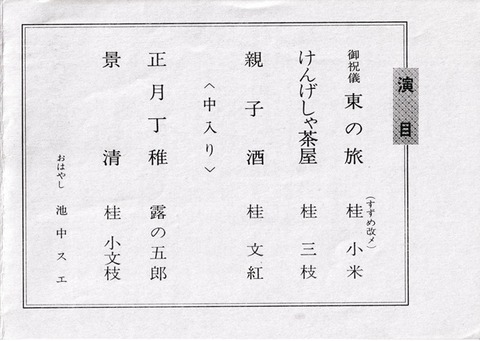 演目
御祝儀 東の旅 桂 小米
(すずめ改メ)
けんげしゃ茶屋 桂 三枝
親子酒 桂 文紅
〈中入り〉
正月丁稚 露の五郎
景清 桂 小文枝
おはやし 池中スエ